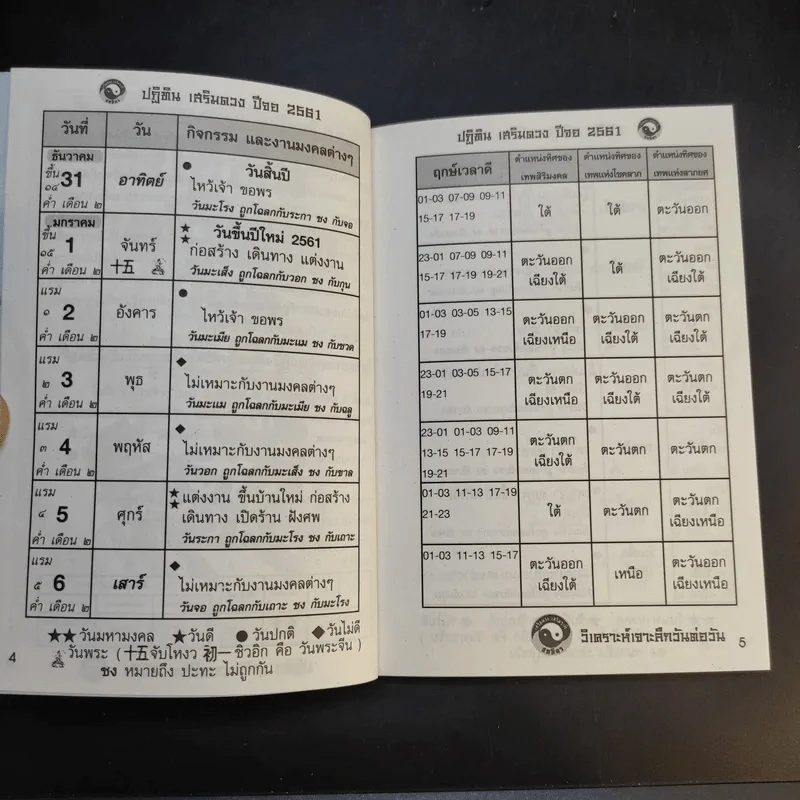 ปฏิทิน เสริมดวง ปีจอ 2561
วันที่ วัน กิจกรรม และงานมงคลต่างๆ
ธันวาคม
ขึ้น ๑๔ 31 ค่ำ เดือน ๒
อาทิตย์
● วันสิ้นปี
ไหว้เจ้า ขอพร
วันมะโรง ถูกโฉลกกับระกา ชง กับจอ
มกราคม
ขึ้น ๑๕ 1 ค่ำ เดือน ๒
จันทร์
十五
★★ วันขึ้นปีใหม่ 2561
ก่อสร้าง เดินทาง แต่งงาน
วันมะเส็ง ถูกโฉลกกับวอก ชง กับกุน
แรม ๑ 2 ค่ำ เดือน ๒
อังคาร
●
ไหว้เจ้า ขอพร
วันมะเมีย ถูกโฉลกกับมะแม ชง กับชวด
แรม ๒ 3 ค่ำ เดือน ๒
พุธ
◆
ไม่เหมาะกับงานมงคลต่างๆ
วันมะแม ถูกโฉลกกับมะเมีย ชง กับฉลู
แรม ๓ 4 ค่ำ เดือน ๒
พฤหัส
◆
ไม่เหมาะกับงานมงคลต่างๆ
วันวอก ถูกโฉลกกับมะเส็ง ชง กับขาล
แรม ๔ 5 ค่ำ เดือน ๒
ศุกร์
★★ แต่งงาน ขึ้นบ้านใหม่ ก่อสร้าง
เดินทาง เปิดร้าน ฝังศพ
วันระกา ถูกโฉลกกับมะโรง ชง กับเถาะ
แรม ๕ 6 ค่ำ เดือน ๒
เสาร์
◆
ไม่เหมาะกับงานมงคลต่างๆ
วันจอ ถูกโฉลกกับเถาะ ชง กับมะโรง
★★วันมหามงคล ★วันดี ●วันปกติ ◆วันไม่ดี
วันพระ (十五จับโหงว 初一ชิวอิก คือ วันพระจีน)
ชง หมายถึง ปะทะ ไม่ถูกกัน
4
ปฏิทิน เสริมดวง ปีจอ 2561
ฤกษ์เวลาดี
ตำแหน่งทิศของ
เทพสิริมงคล
ตำแหน่งทิศของ
เทพแห่งโชคลาภ
ตำแหน่งทิศของ
เทพแห่งลาภยศ
01-03 07-09 09-11
15-17 17-19
ใต้ ใต้ ตะวันออก
23-01 07-09 09-11
15-17 17-19 19-21
ตะวันออกเฉียงใต้ ใต้ ตะวันออกเฉียงใต้
01-03 03-05 13-15
17-19
ตะวันออกเฉียงเหนือ ตะวันออกเฉียงใต้ ตะวันตกเฉียงใต้
01-03 03-05 15-17
19-21
ตะวันตกเฉียงเหนือ ตะวันออกเฉียงใต้ ตะวันตกเฉียงใต้
23-01 01-03 09-11
13-15 15-17 17-19
19-21
ตะวันตกเฉียงใต้ ตะวันตก ตะวันตก
01-03 11-13 17-19
21-23
ใต้ ตะวันตก ตะวันตกเฉียงเหนือ
01-03 11-13 15-17
ตะวันออกเฉียงใต้ เหนือ ตะวันออกเฉียงเหนือ
วิเคราะห์เจาะลึกวันต่อวัน
5